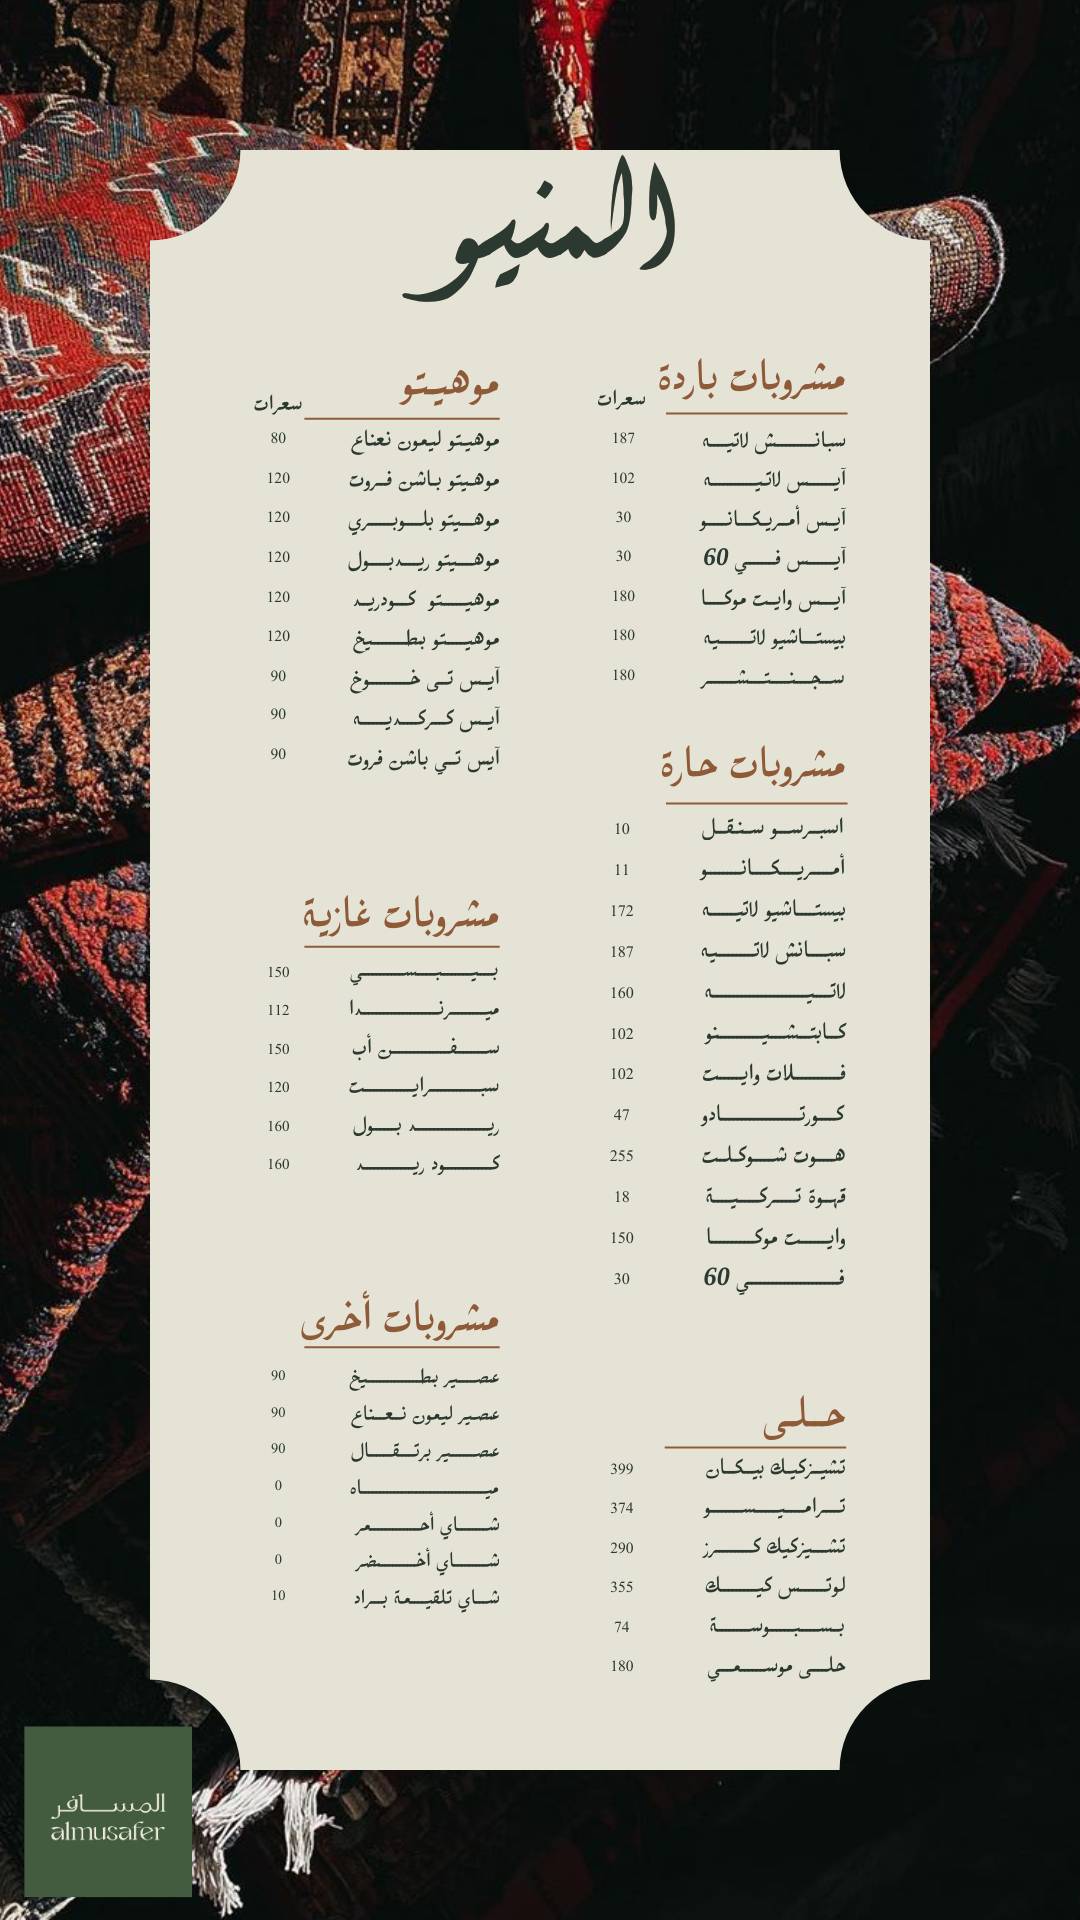 المنيو
مشروبات باردة سعرات
سبانش لاتيه 187
آيس لاتيه 102
آيس أمريكانو 30
آيس في 60 30
آيس وايت موكا 180
بيستاشيو لاتيه 180
سجنتشر 180
مشروبات حارة
اسبرسو سنقل 10
أمريكانو 11
بيستاشيو لاتيه 172
سبانش لاتيه 187
لاتيه 160
كابتشينو 102
فلات وايت 102
كورتادو 47
هوت شوكلت 255
قهوة تركية 18
وايت موكا 150
في 60 30
حلى
تشيزكيك بيكان 399
تراميسو 374
تشيزكيك كرز 290
لوتس كيك 355
بسبوسة 74
حلى موسمي 180
موهيتو سعرات
موهيتو ليمون نعناع 80
موهيتو باشن فروت 120
موهيتو بلوبري 120
موهيتو ريدبول 120
موهيتو كودريد 120
موهيتو بطيخ 120
آيس تي خوخ 90
آيس كركديه 90
آيس تي باشن فروت 90
مشروبات غازية
بيبسي 150
ميرندا 112
سفن أب 150
سبرايت 120
ريد بول 160
كود ريد 160
مشروبات أخرى
عصير بطيخ 90
عصير ليمون نعناع 90
عصير برتقال 90
مياه 0
شاي أحمر 0
شاي أخضر 0
شاي تلقيمة براد 10
المسافر
almusafer